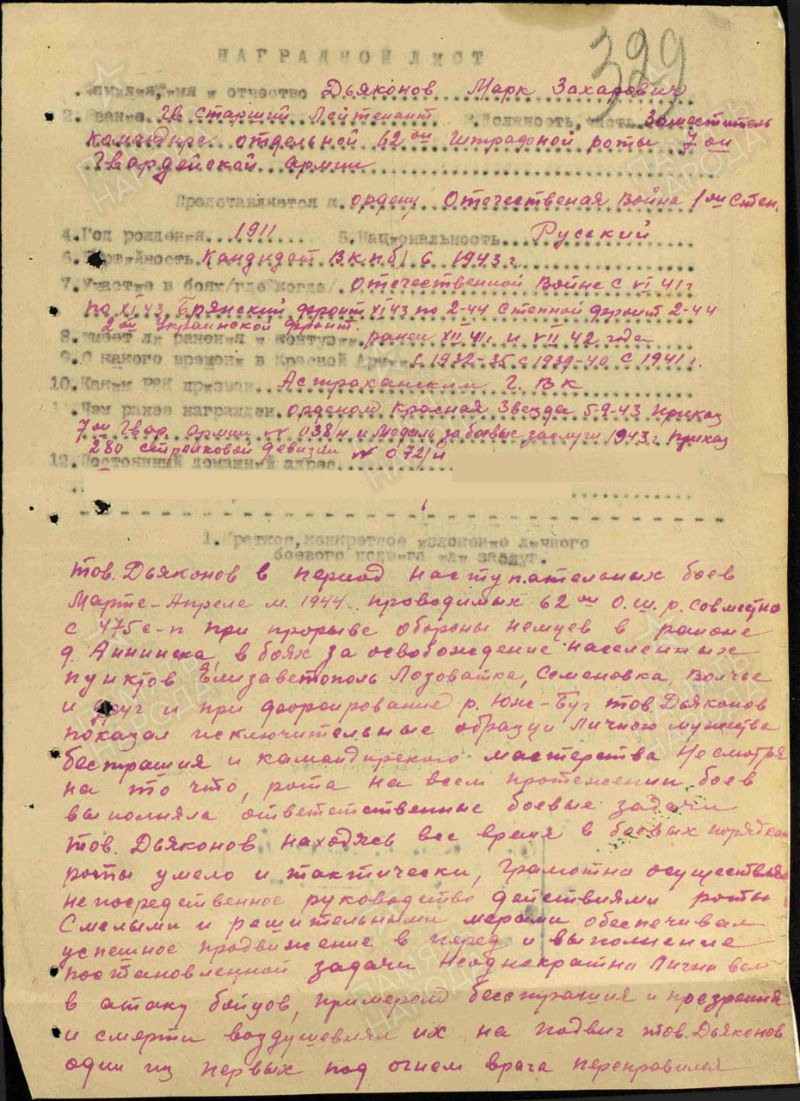 329
НАГРАДНОЙ ЛИСТ
Фамилия, имя и отчество Дьяконов Марк Захарович
2. Звание Гв Старший Лейтенант 3. Должность, часть Заместитель
командира отдельной 62 ой Штрафной роты 7 ой
Гвардейской армии
Представляется к ордену Отечественая Война 1 ой Степ.
4. Год рождения 1911 5. Национальность Русский
6. Партийность Кандидат В.К.П.б/ с 1943 г
7. Участие в боях/где когда/ Отечественной Войне с VI 41 г
по XI 43 Брянский фронт XI 43 по 2-44 Степной фронт 2-44
2 ой Украинской фронт.
8. Имеет ли ранения и контузии ранен XII 41 г. и VII 42 года
9. С какого времени в Красной Армии с 1932-35 с 1939-40 с 1941 г.
10. Каким РВК призван Астраханским Г. В К
11. Чем ранее награжден орденом Красная Звезда 5-9-43 приказ
7 ой Гвар. армии № 038/н и Медаль за боевые заслуги 1943 г. приказ
280 стрелковой девизии № 072/н
12. Постоянный домашний адрес
1. Краткое, конкретное изложение личного
боевого подвига или заслуг.
тов. Дьяконов в период наступательных боев
Марте-Апреле м. 1944 проводимых 62 ой О.Ш.р. совместно
с 475 с-п при прорыве обороны немцев в районе
д. Аннинска, в боях за освобождение населенных
пунктов Елизаветополь Лозоватка, Семеновка, Волчье
и друг и при форсирование р. Юж-Буг тов. Дьяконов
показал исключительные образци Личного мужества
бестрашия и командирского мастерства Несмотря
на то что, рота на всем протежении боев
выполняла ответственные боевые задачи
тов. Дьяконов находясь все время в боевых порядках
роты умело и тактически, грамотно осуществлял
непосредственное руководство действиями роты
Смелыми и решительными мерами обеспечивал
успешное продвижение в перед и выполнение
поставленной задачи Неоднократно Лично вел
в атаку бойцов, примером бесстрашия и презрения
и смерти воздушевлял их на подвиг тов. Дьяконов
один из первых под огнем врага переправился